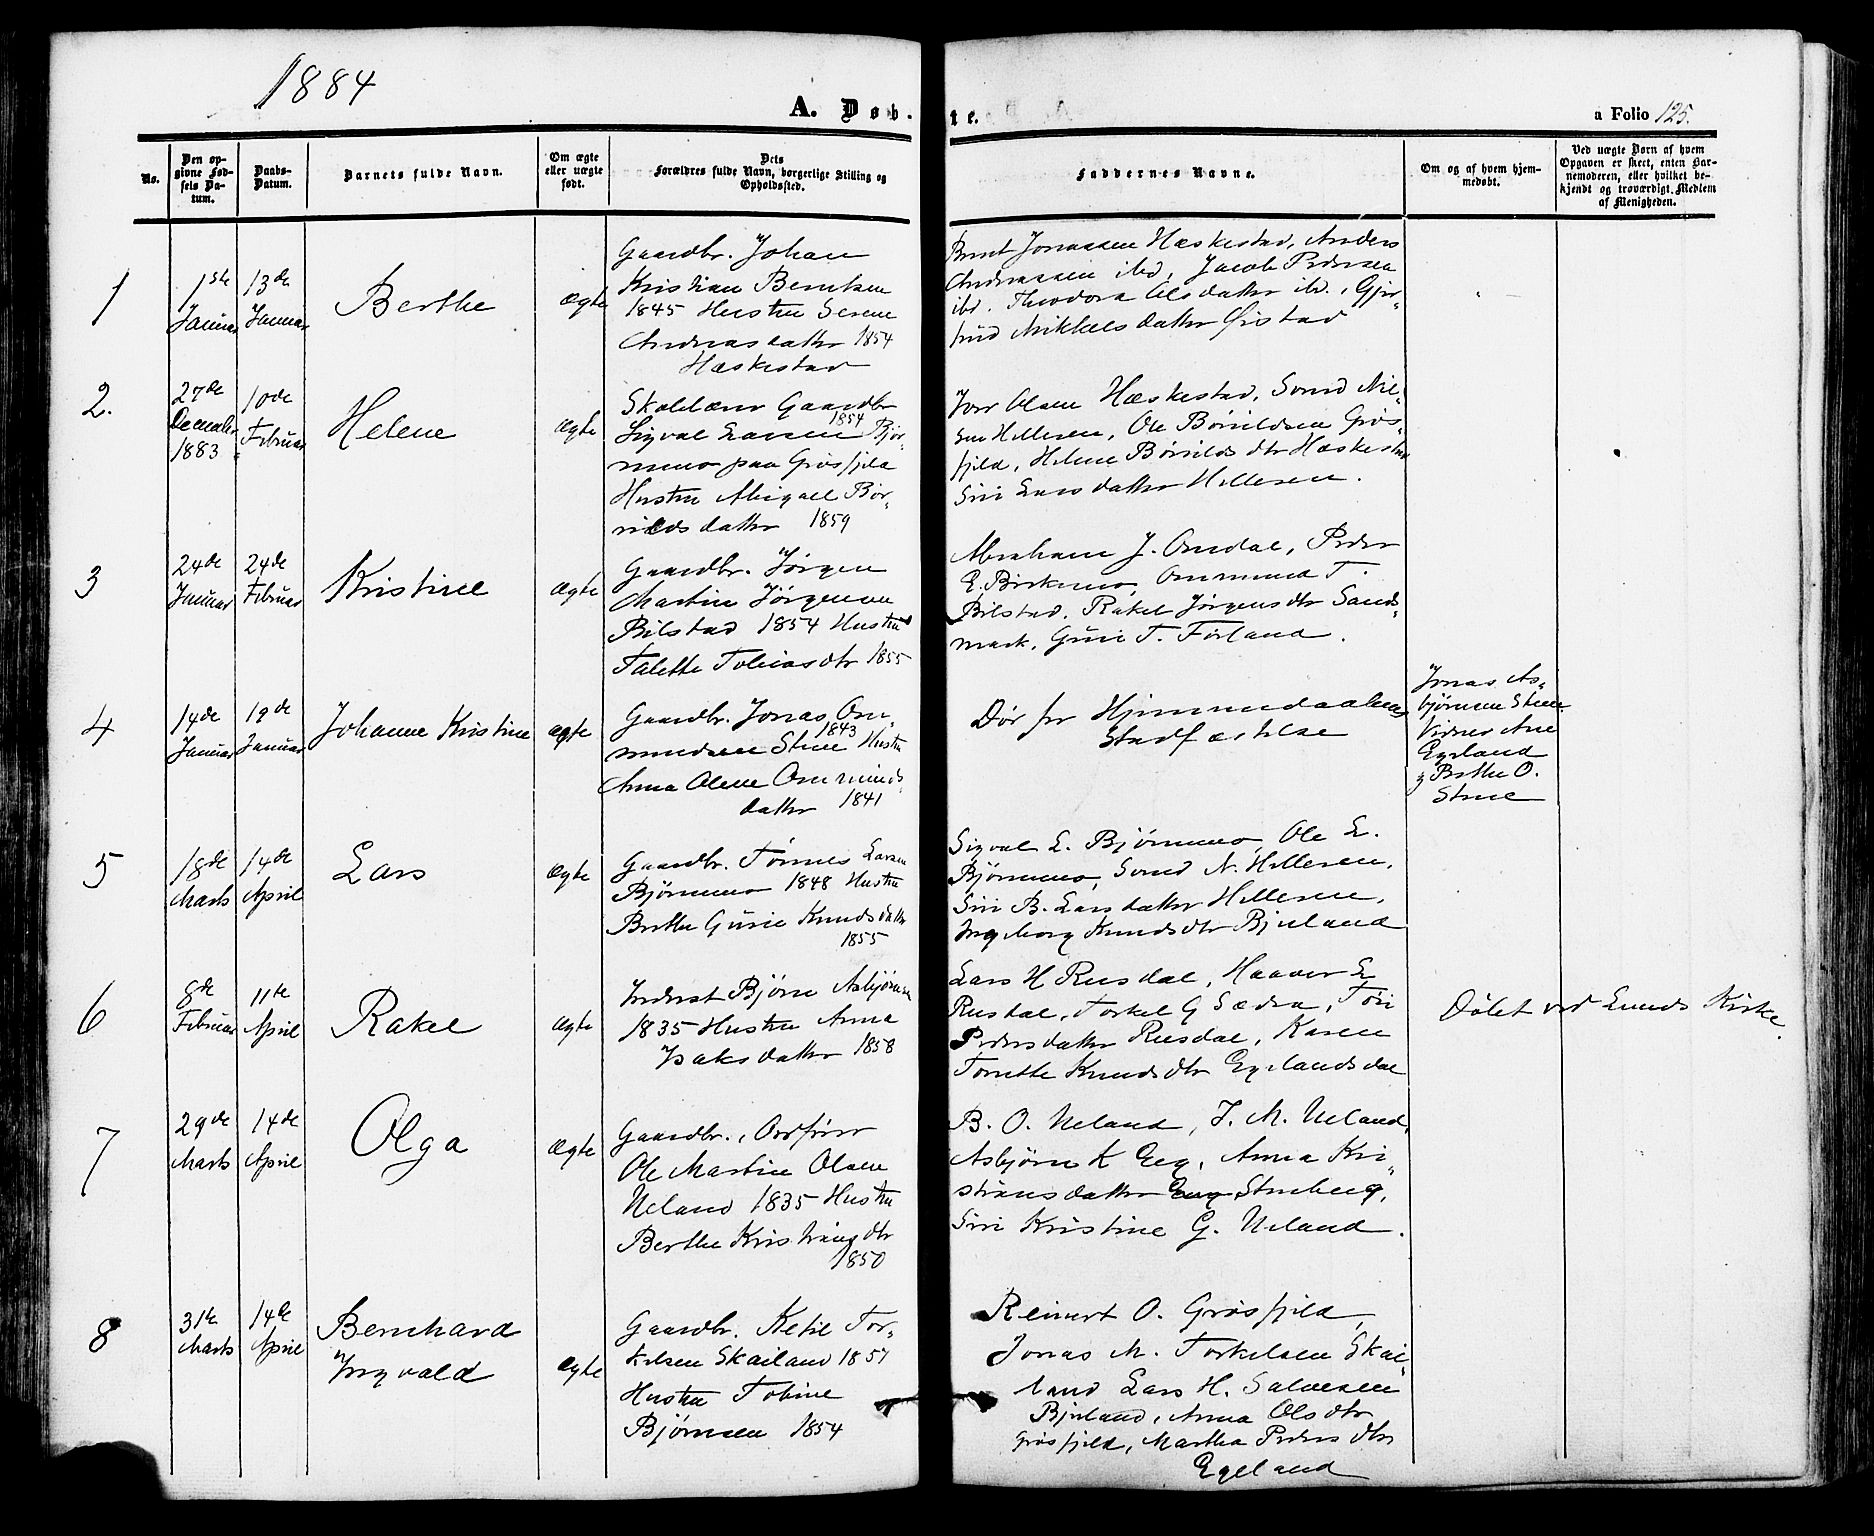 1884
A. Døb-
te.
a Folio 125.
No.
Den op-
givne Fød-
sels Da-
tum.
Daabs-
Datum.
Barnets fulde Navn.
Om ægte
eller uægte
født.
Dets
Forældres fulde Navn, borgerlige Stilling og
Opholdssted.
Faddernes Navne.
Om og af hvem hjem-
medøbt.
Ved uægte Børn af hvem
Opgaven er skeet, enten Bar-
nemoderen, eller hvilket be-
kjendt og troværdigt Medlem
af Menigheden.
1
1ste
Januar
13de
Januar
Berthe
ægte
Gaardbr. Johan
Kristian Berntsen
1845 Hustru Serene
Andreasdatter 1854
Hæskestad
Bernt Jonassen Hæskestad, Anders
Andreassen ibd, Jacob Pedersen
ibd. Theodora Olsdatter ibd., Gjer-
trud Mikkelsdatter Øistad
2.
27de
December
1883
10de
Februar
Helene
ægte
Skolelærer Gaardbr
Sigval Larsen 1854 Bjør-
nemo paa Grøsfjeld
Hustru Abigael Bør-
rildsdatter 1859
Olsen Hæskestad, Svend Nil-
sen Hellesen, Ole Børildsen Grøs-
fjeld, Helene Børildsdtr Hæskestad
Siri Larsdatter Hellesen.
3
24de
Januar
24de
Februar
Kristine
ægte
Gaardbr. Jørgen
Martin Jørgensen
Bilstad 1854 Hustru
Talette Tobiasdtr 1855
Abraham J. Omdal, Peder
E. Birkemo, Ommund T.
Bilstad, Rakel Jørgensdtr Sand-
mark, Guri T. Førland.
4
14de
Januar
19de
Januar
Johanne Kristine
ægte
Gaardbr. Jonas Om-
mundsen 1843 Stene Hustru
Anna Olene Ommunds-
datter 1841
Dør før Hjemmedaabens
Stadfæstelse
Jonas As-
bjørnsen Stene
Vidner Ane
Egeland
g Berthe O.
Stene
5
18de
Marts
14de
April
Lars
ægte
Gaardbr. Tønnes Larsen
Bjørnemo 1848 Hustru
Berthe Gurie Knudsdatter
1855
Sigval L. Bjørnemo, Ole L.
Bjørnemo, Svend N. Hellesen,
Siri B. Larsdatter Hellesen,
Ingeborg Knudsdtr Bjuland
6
8de
Februar
11te
April
Rakel
ægte
Inderst Bjørn Asbjørnsen
1835 Hustru Anna
Isaksdatter 1858
Lars H Rusdal, Haaver L
Rusdal, Torkel G Sædra, Tøri
Pedersdatter Rusdal, Karen
Tonette Knudsdtr Egelandsdal
Døbt ved Lunds Kirke.
7
29de
Marts
14de
April
Olga
ægte
Gaardbr., Ordfører
Ole Martin Olsen
Ueland 1835 Hustru
Berthe Kristiansdtr
1850
B. O. Ueland, T. M. Ueland,
Asbjørn K Eeg, Anna Kri-
stiansdatter Stenberg,
Siri Kristine G. Ueland.
8
31te
Marts
14de
April
Bernhard
Ingvald
ægte
Gaardbr. Ketil Tor-
kelsen Skailand 1857
Hustru Tobine
Bjørnsen 1854
Reinert O. Grøsfjeld,
Jonas M. Torkelsen Skai-
land Lars H. Salvesen
Bjuland, Anna Olsdtr
Grøsfjeld, Martha Pedersdtr
Egeland